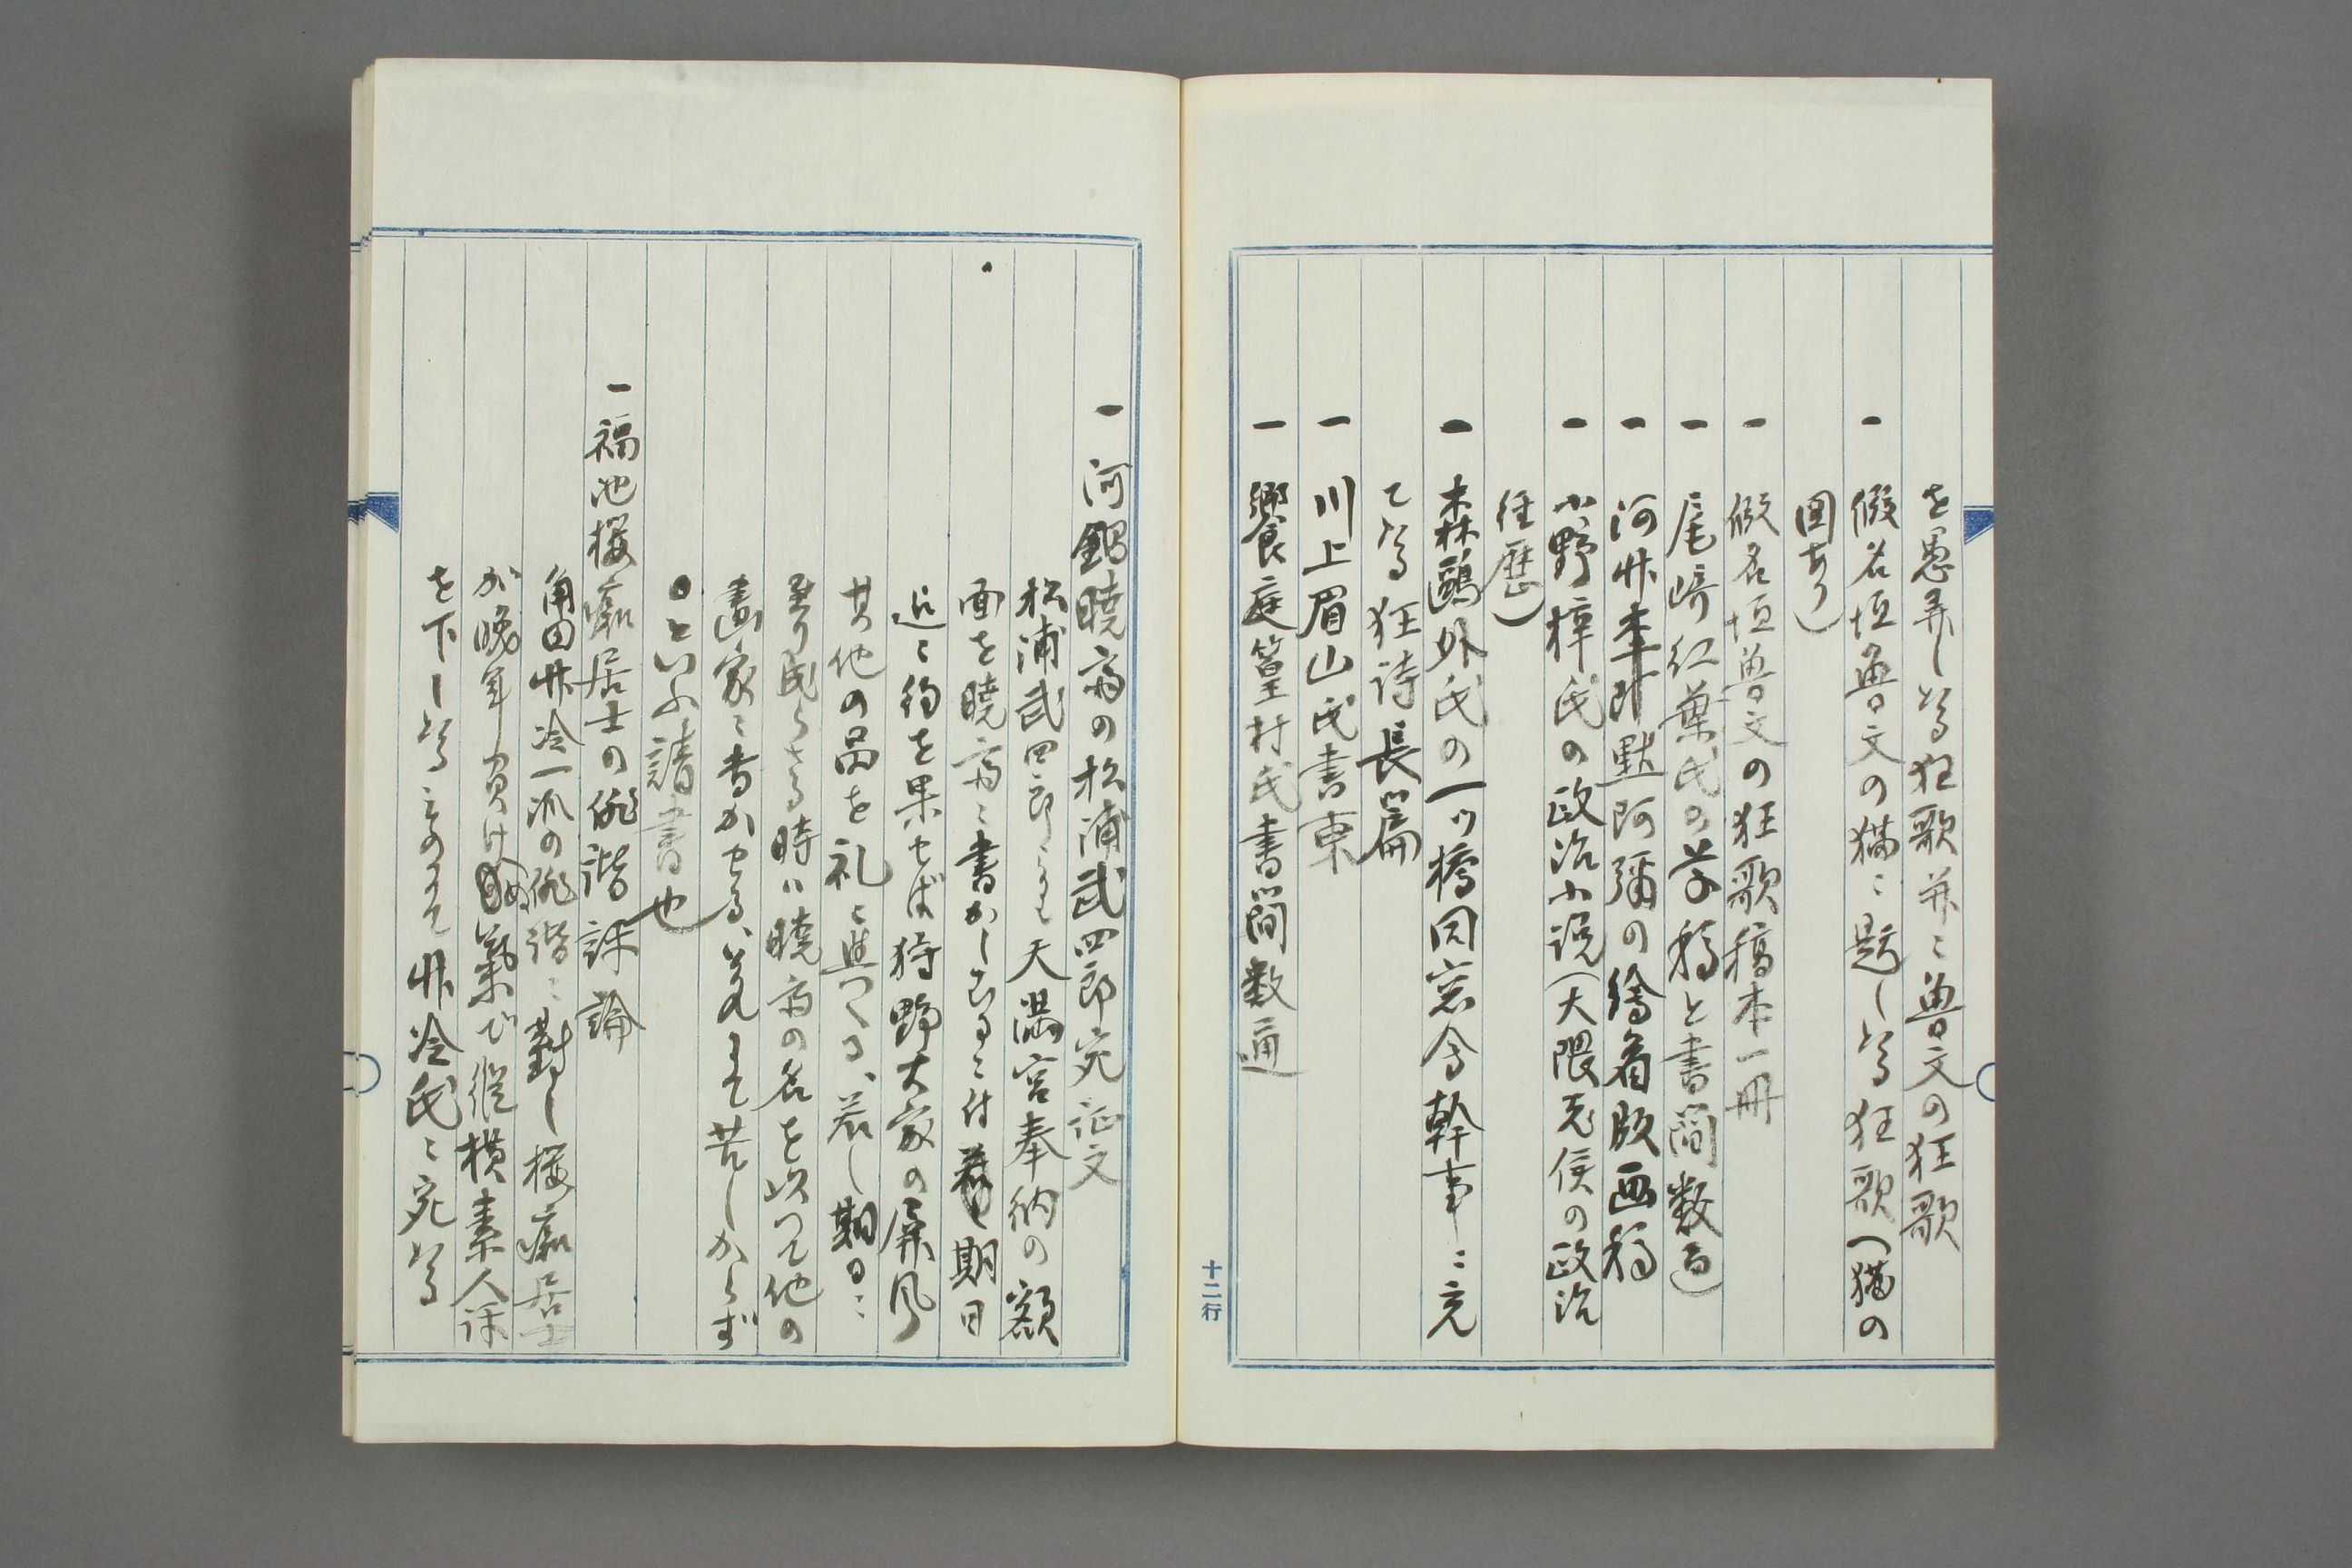 を愚弄したる狂歌並ニ魯文の狂歌
一 假名垣魯文の猫ニ題したる狂歌（猫の
図あり）
一 假名垣魯文の狂歌稿本一冊
一 尾崎紅葉氏の草稿と書簡数通
一 河竹黙阿彌の繪看版画稿
一 小野梓氏の政治小説（大隈老侯の政治
経歴）
一 森鷗外氏の一ツ橋同窓会幹事ニ充
てたる狂詩長篇
一 川上眉山氏書柬
一 饗庭篁村氏書簡数通
十二行
一 河鍋暁斎の松浦武四郎宛証文
松浦武四郎より天満宮奉納の額
面を暁斎ニ書かしむるニ付期日
迄ニ約を果せば狩野大家の屏風
其他の品を礼ニ与へる、若し期日ニ
至り成らざる時ハ暁斎の名を以つて他の
画家ニ書かせる、ても苦しからず
といふ請書也
一 福池櫻痴居士の俳諧評論
角田竹冷一派の俳諧ニ對し櫻痴居士
が晩年負け氣で縦横素人評
を下したるものにて竹冷氏ニ宛たる